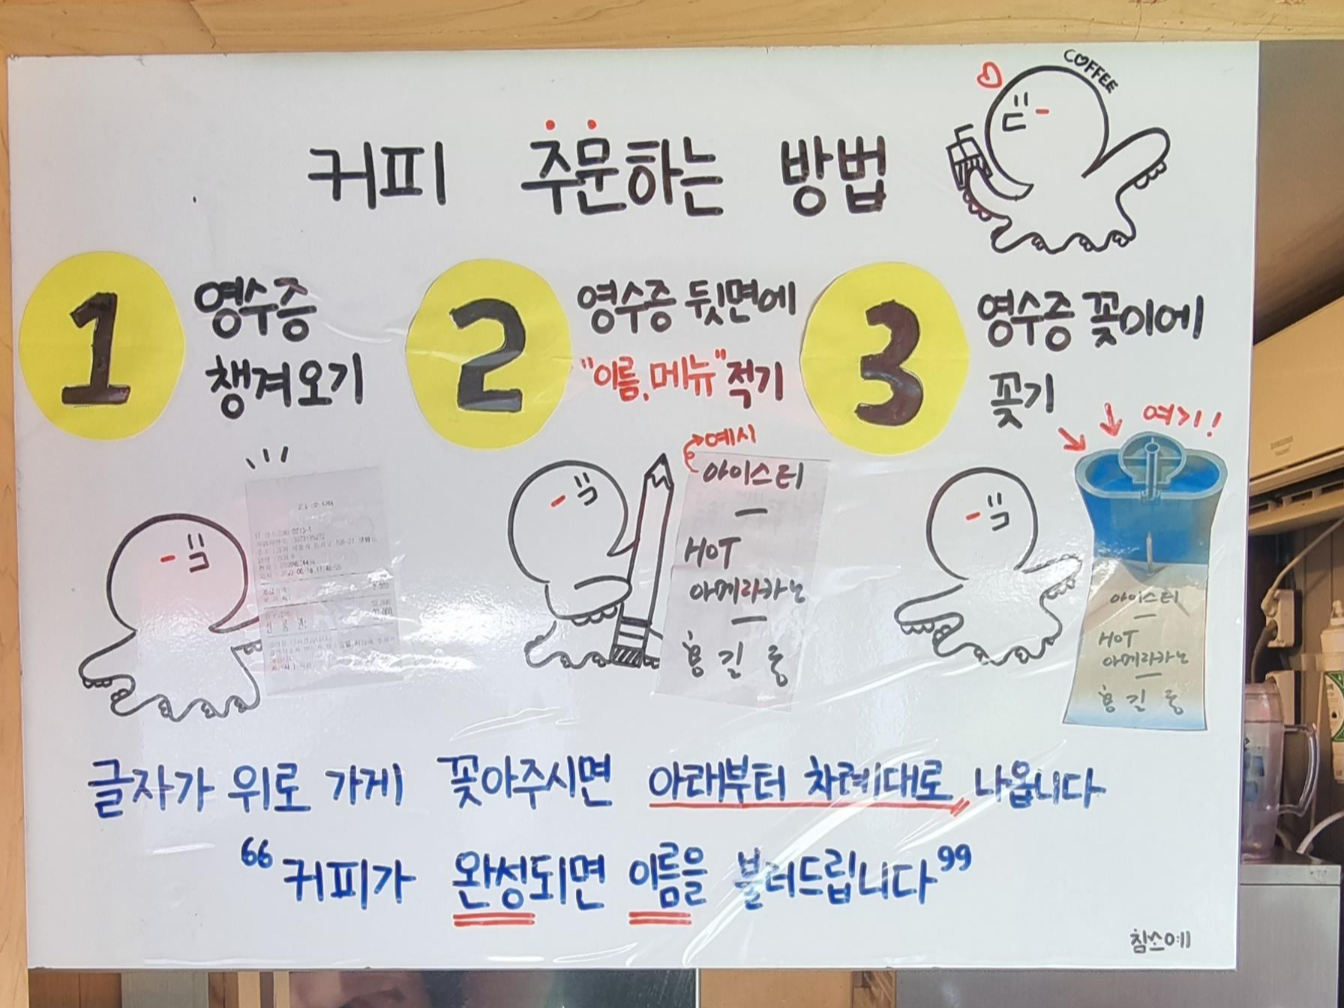 COFFEE
커피 주문하는 방법
1
영수증
챙겨오기
2
영수증 뒷면에
"이름, 메뉴" 적기
3
영수증 꽂이에
꽂기
예시
아이스티
HOT
아메리카노
홍길동
여기!
아이스티
HOT
아메리카노
홍길동
글자가 위로 가게 꽂아주시면 아래부터 차례대로 나옵니다
"커피가 완성되면 이름을 불러드립니다"
침스에